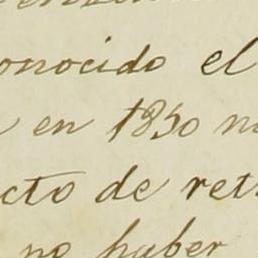 onocido el
en 1830 n
cto de ret
no haber